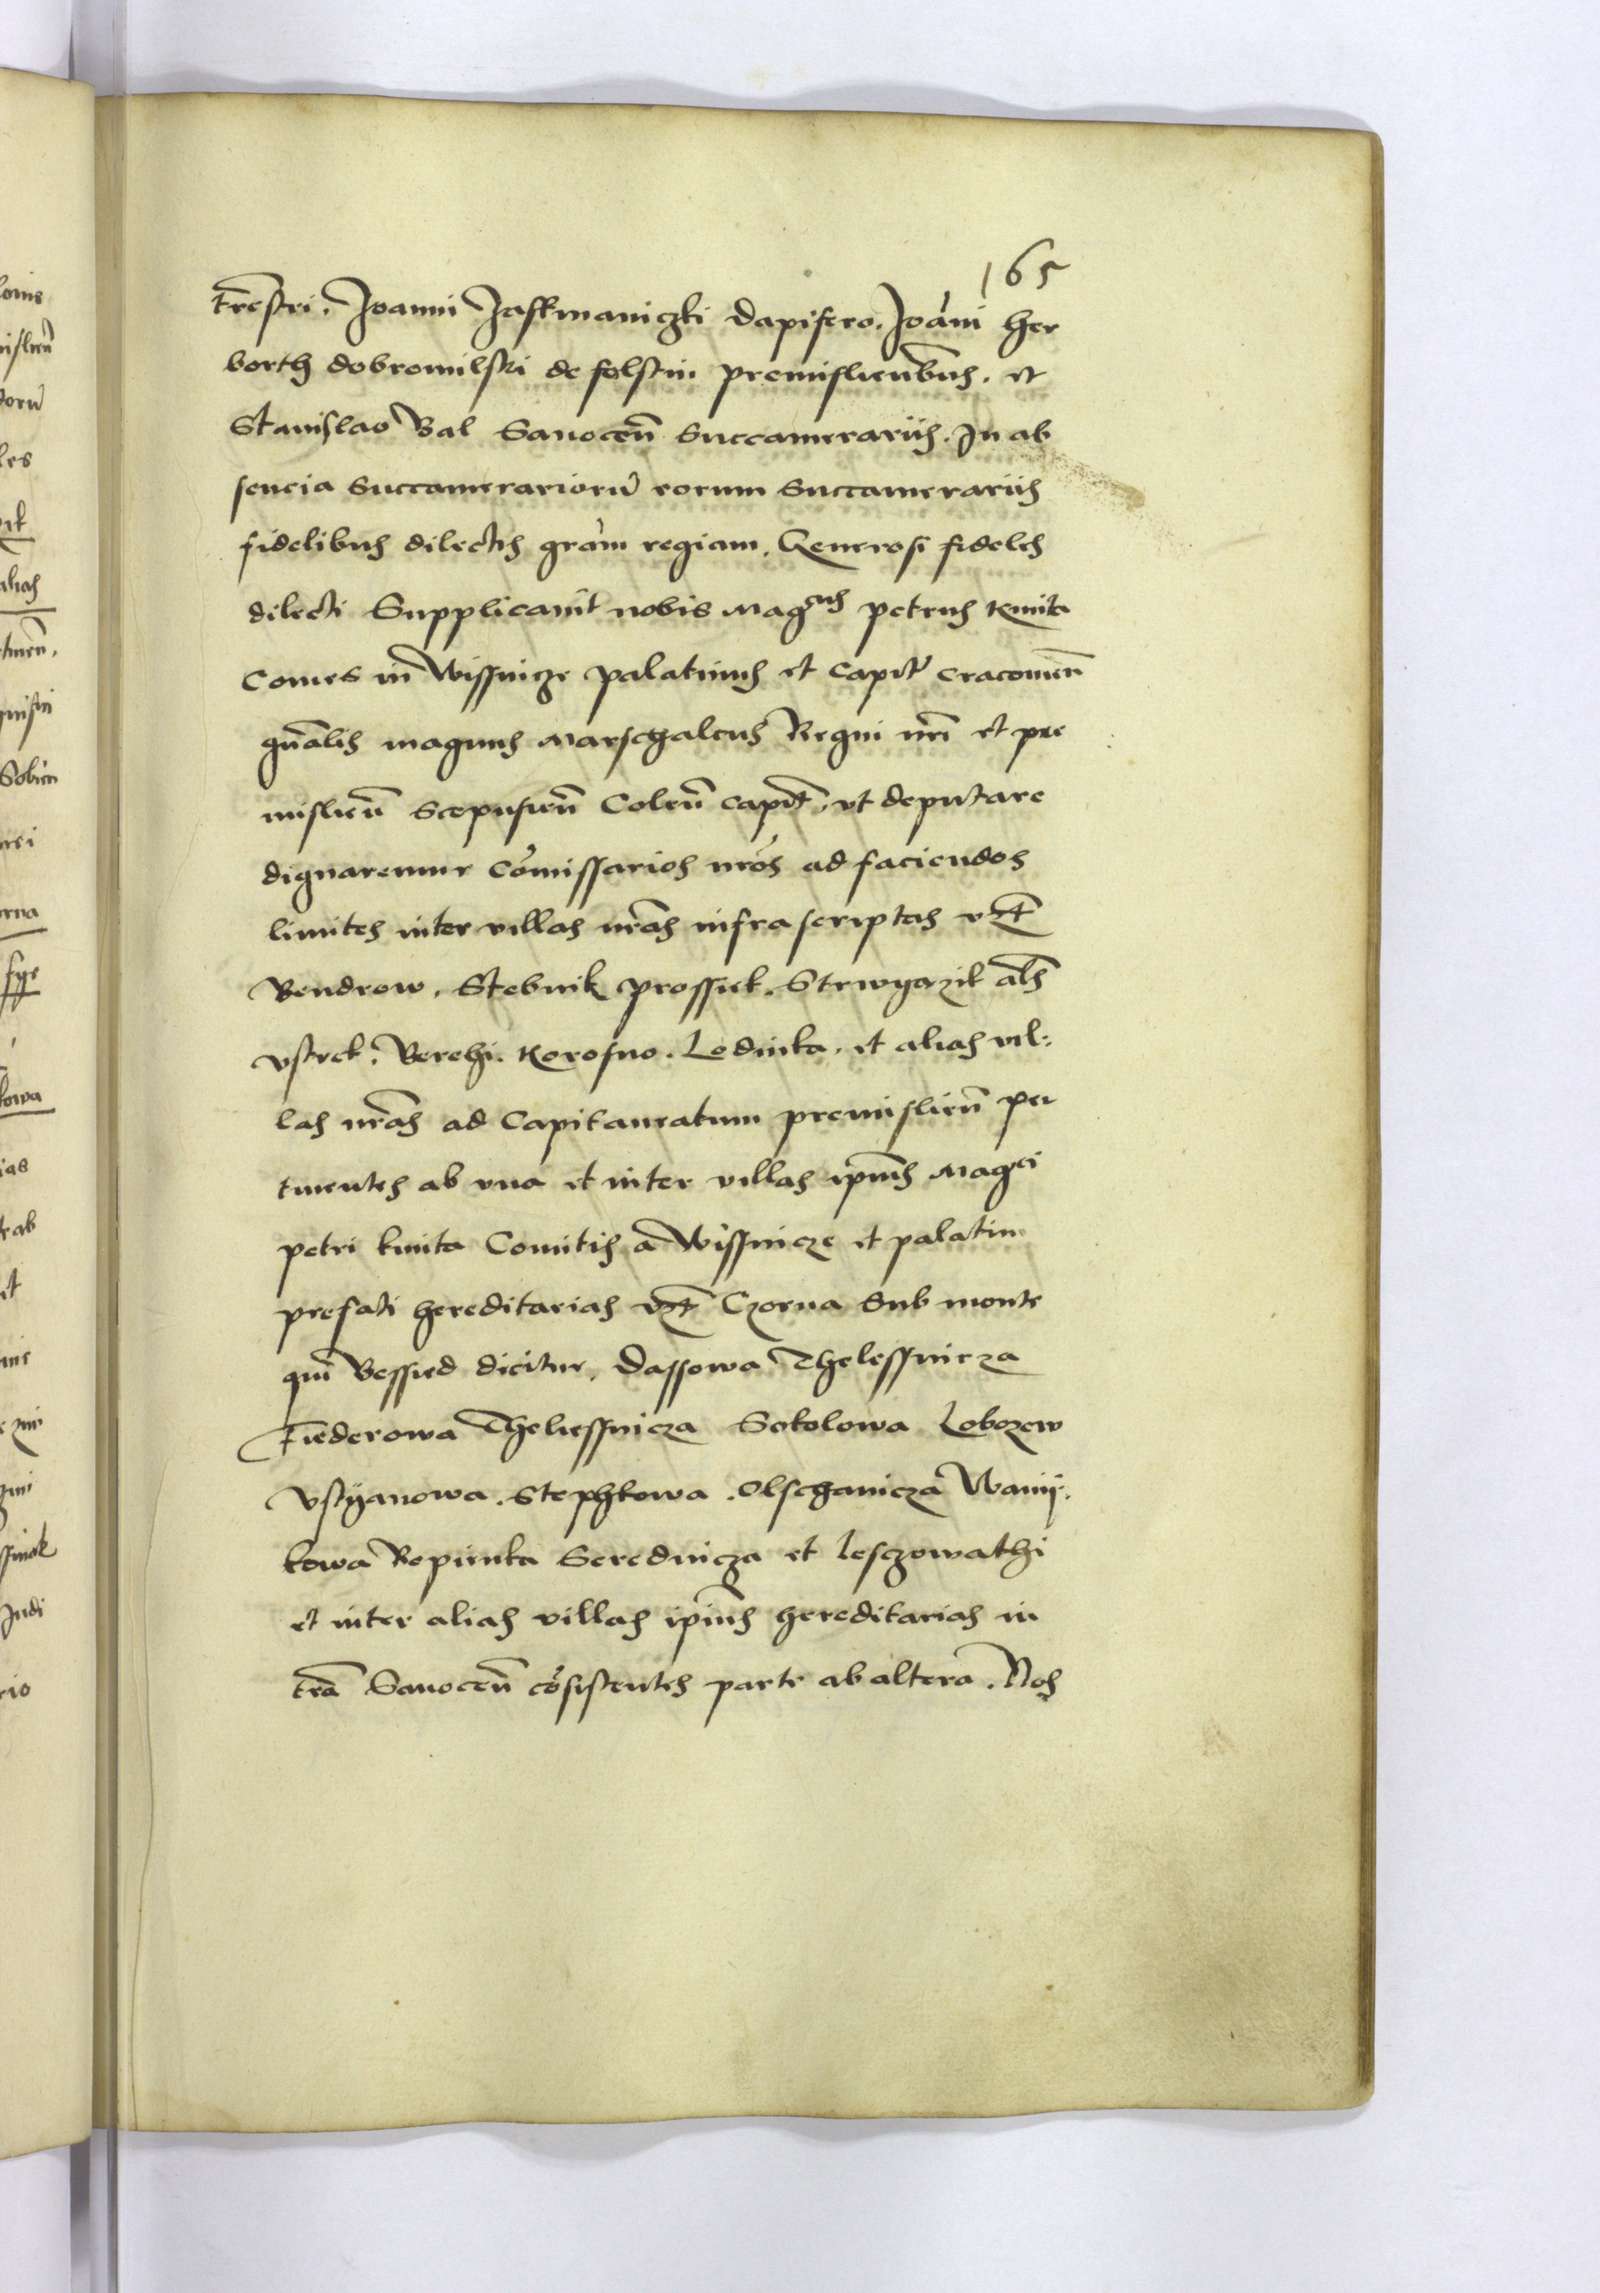 165
trēstri. Joanni Jaskmaniczki dapifero. Joāni her
borth dobromilski de felstin premisliēnbus. et
Stanislao Bal Sanocēn Succamerariis. In ab
sencia Succamerariorū eorum Succamerariis
fidelibus dilectis grām regiam. Generosi fideles
dilecti Supplicavit nobis Magcus petrus kmita
Comes in Wissnicze palatinus et capit cracoviēn
gnālis magnus Marschalcus Regni nrī et pre
mislieñ Scepusieñ Coleñ capit, ut deputare
dignaremur Cōmissarios nrōs ad faciendos
limites inter villas nrās infra scriptas vzt
Bendrow. Stebnik prossiek. Strwyazik als
vstrek. Berehi. Korosno. Lodinka. et alias vil:
las nrās ad Capitaneatum premislieñ per
tinentes ab una et inter villas ipius Magci
petri kmita Comitis a Wissnicze et palatini
prefati hereditarias vzt Czorna sub monte
qui Bessied dicitur. Dassowa Thelessnicza
Fiederowa Theliessnicza Sokolowa Lobozew
Vstyanowa. Stephkowa. Olschanicza Wanij.
kowa Ropienka Serednicza et lesczowathi
et inter alias villas ipius hereditarias in
trā Sanoceñ cōsistentes parte ab altera. Nos